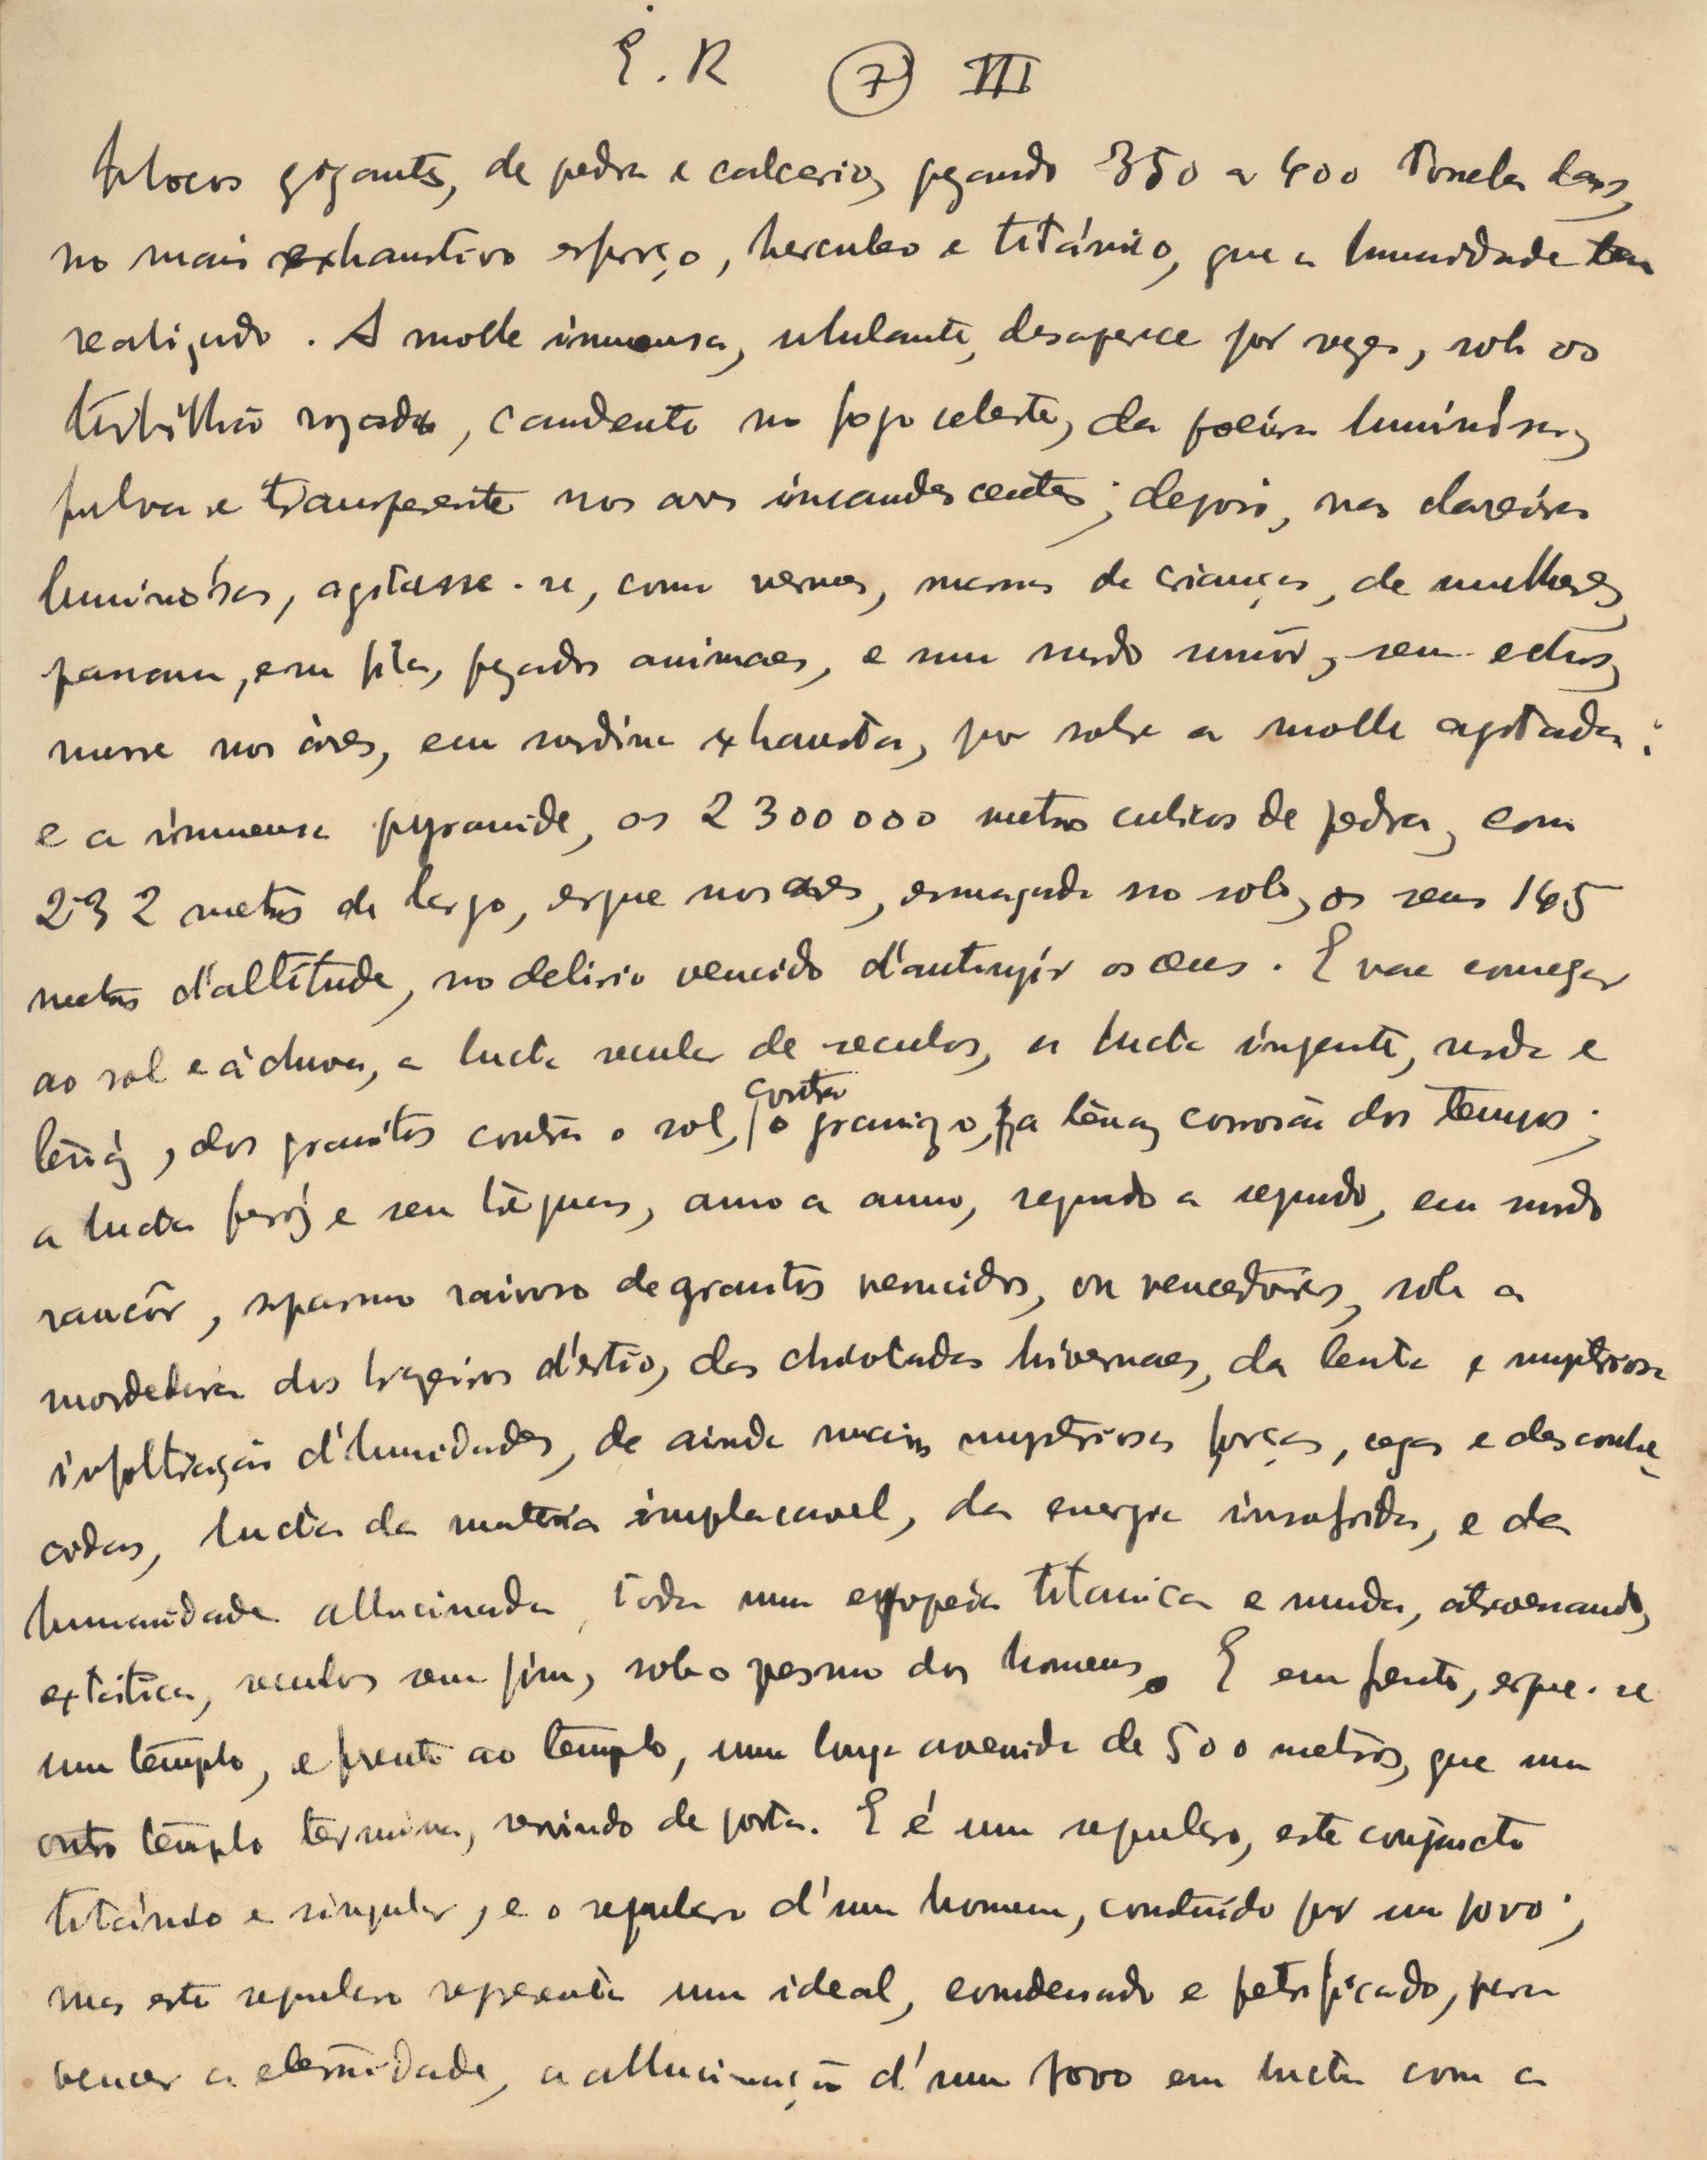 E. R 7 III
blocos gigantes, de pedra e calcerio, pezando 350 a 400 Toneladas,
no mais exhaustivo esforço, herculeo e titánico, que a humanidade tem
realizado. A molle immensa, ululante, desaparece por vezes, sob os
turbilhão rozado, candente no fogo celeste, da poeira luminósa,
fulva e transparente nos ares incandescentes; depois, nas clareiras
luminósas, agitasse-se, como vermes, massas de crianças, de mulheres,
passam, em fila, pezados animaes, e um surdo rumôr, sem echos,
murre nos áres, em surdina exhausta, por sobre a molle agitada;
e a immensa pyramide, os 2300000 metros cubicos de pedra, com
232 metros de largo, ergue nos ares, esmagada no solo, os seus 145
metros d'altitude, no delirio vencido d'antingir os ceus. E vae começar
ao sol e á chuva, a lucta secular de seculos, a lucta ingente, surda e
tenáz, dos granitos contra o sol, contra o granizo, a tenaz corrosão dos tempos;
a lucta feróz e sem tréguas, anno a anno, segundo a segundo, em surdo
rancôr, espasmo raivoso de granitos vencidos, ou vencedores, sob a
mordedura dos brazeiros d'estio, das chicotadas hivernaes, da lenta e mysteriosa
infiltração d'humidades, de ainda mais mysteriosas forças, cegas e desconhe-
cidas, lucta da materia implacavel, da energia insofrida, e da
humanidade allucinada, toda uma epopeia titanica e muda, atravessando,
extática, seculos sem fim, sob o pasmo dos homens. E em frente, ergue-se
um templo, e frente ao templo, uma longa avenida de 500 metros, que um
outro templo termina, servindo de porta. E é um sepulcro, este conjuncto
titánico e singular, e o sepulcro d'um homem, construido por um povo;
mas este sepulcro representa um ideal, condensado e petrificado, para
vencer a eternidade, a allucinação d'um povo em lucta com a